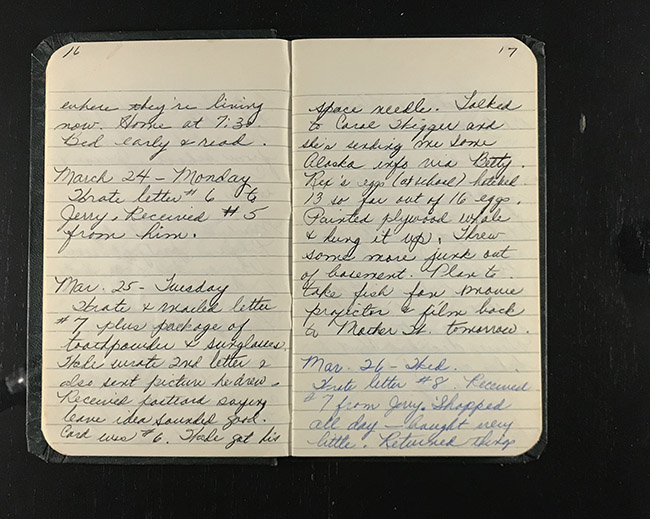 16
where they're living
now. Home at 7:30.
Bed early & read.
March 24 - Monday
Wrote letter #6 to
Jerry. Received #5
from him.
Mar. 25 - Tuesday
Wrote & mailed letter
#7 plus package of
toothpowder & sunglasses.
wrote 2nd letter &
also sent picture he drew.
Received postcard saying
leave idea sounded good.
Card was #6. got his
17
space needle. Talked
to Coral and
she's sending me some
Alaska info via Betty.
Rex's eggs (at school) hatched
13 so far out of 16 eggs.
Painted plywood whale
& hung it up. Threw
some more junk out
of basement. Plan to
take fish fan movie
projector & film back
to Mother H. tomorrow.
Mar. 26 - Wed.
Wrote letter #8. Received
#7 from Jerry. Shopped
all day - bought very
little. Returned things